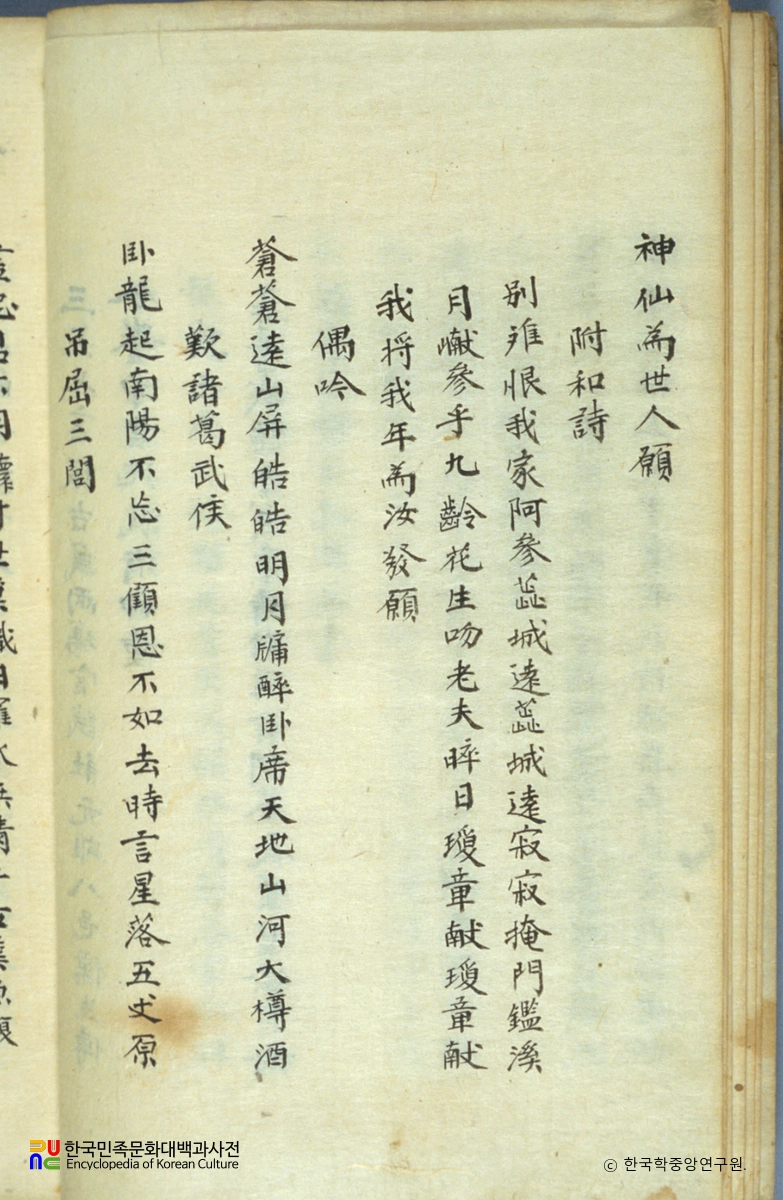 神仙為世人願
附和詩
別难恨我家阿參蕋城遠蕋城遠寂寂掩門鑑溪
月巘參乎九齡花生吻老夫晬日瓊章献瓊章献
我將我年為汝發願
偶吟
蒼蒼遠山屏皓皓明月牖醉卧席天地山河大樽酒
歎諸葛武侯
卧龍起南陽不忘三顧恩不如去時言星落五丈原
吊屈三閭
한국민족문화대백과사전
Encyclopedia of Korean Culture
ⓒ 한국학중앙연구원.